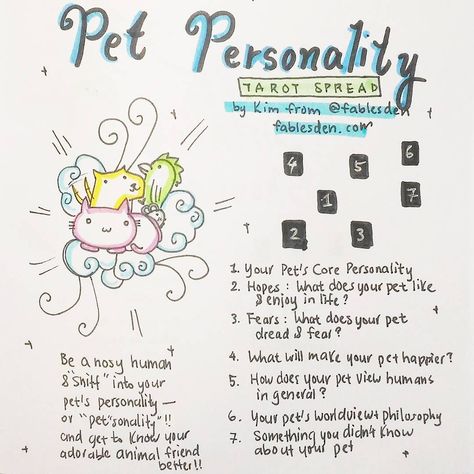 Pet Personality
TAROT SPREAD
by Kim from @fablesden
fablesden.com
4
5
6
1
7
2
3
1. Your Pet's Core Personality
2. Hopes : What does your pet like
& enjoy in life ?
3. Fears : What does your pet
dread & fear ?
4. What will make your pet happier?
5. How does your pet view humans
in general ?
6. Your pet's worldview + philosophy
7. Something you didn't know
about your pet
Be a nosy human
& "Sniff" into your
pet's personality —
or "pet"sonality"!!
and get to know your
adorable animal friend
better!!